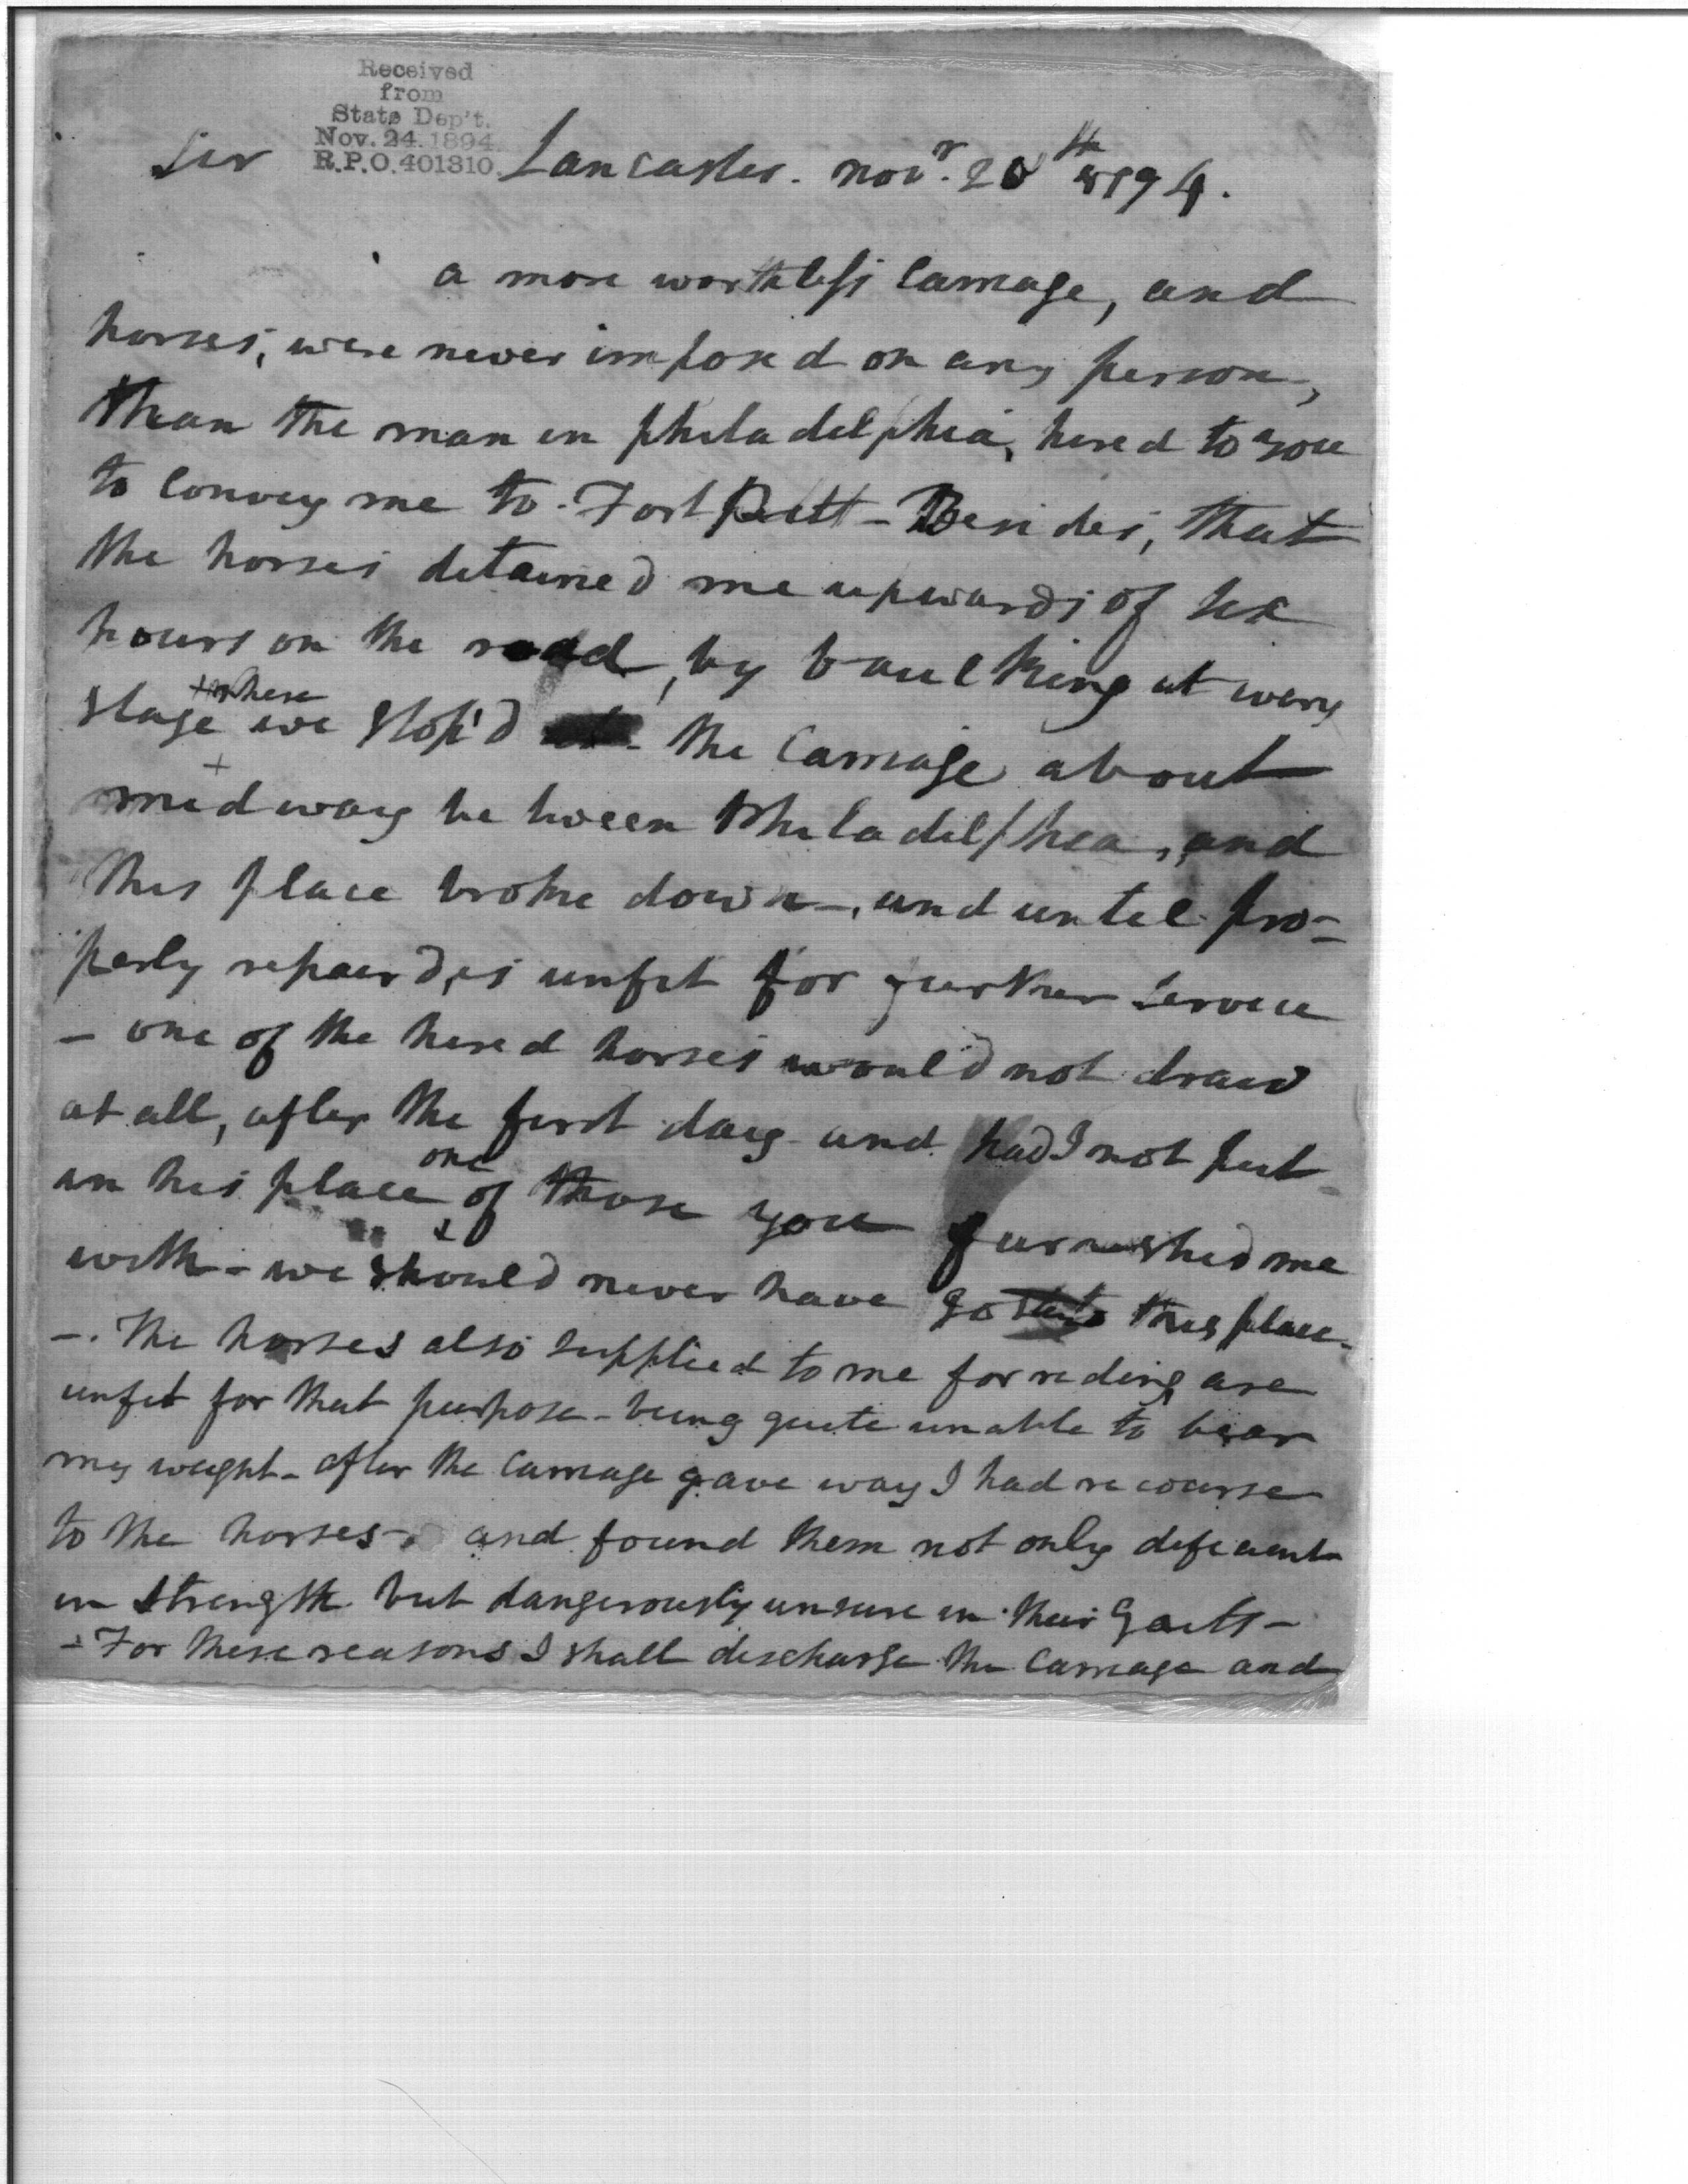 Received
from
State Dep't.
Nov. 24. 1894
R.P.O. 401310.
Sir Lancaster. Novr. 20th 1794.
a more worthless Carriage, and
horses, were never imposed on any person,
than the man in philadelphia, hired to you
to Convey me to Fort Pitt - Besides, that
the horses detained me upwards of six
hours on the road, by baulking at every
stage where we Stop'd - the Carriage about
midway between Philadelphia, and
this place broke down -, and until pro-
perly repair'd, is unfit for further Service
- one of the hired horses would not draw
at all, after the first day - and had I not put
in his place one of those you furnished me
with - we should never have got to this place -
-. The horses also supplied to me for riding are
unfit for that purpose - being quite unable to bear
my weight - after the Carriage gave way I had recourse
to the horses - and found them not only deficient
in strength but dangerously unsure in their Gaits -
- For these reasons I shall discharge the Carriage and